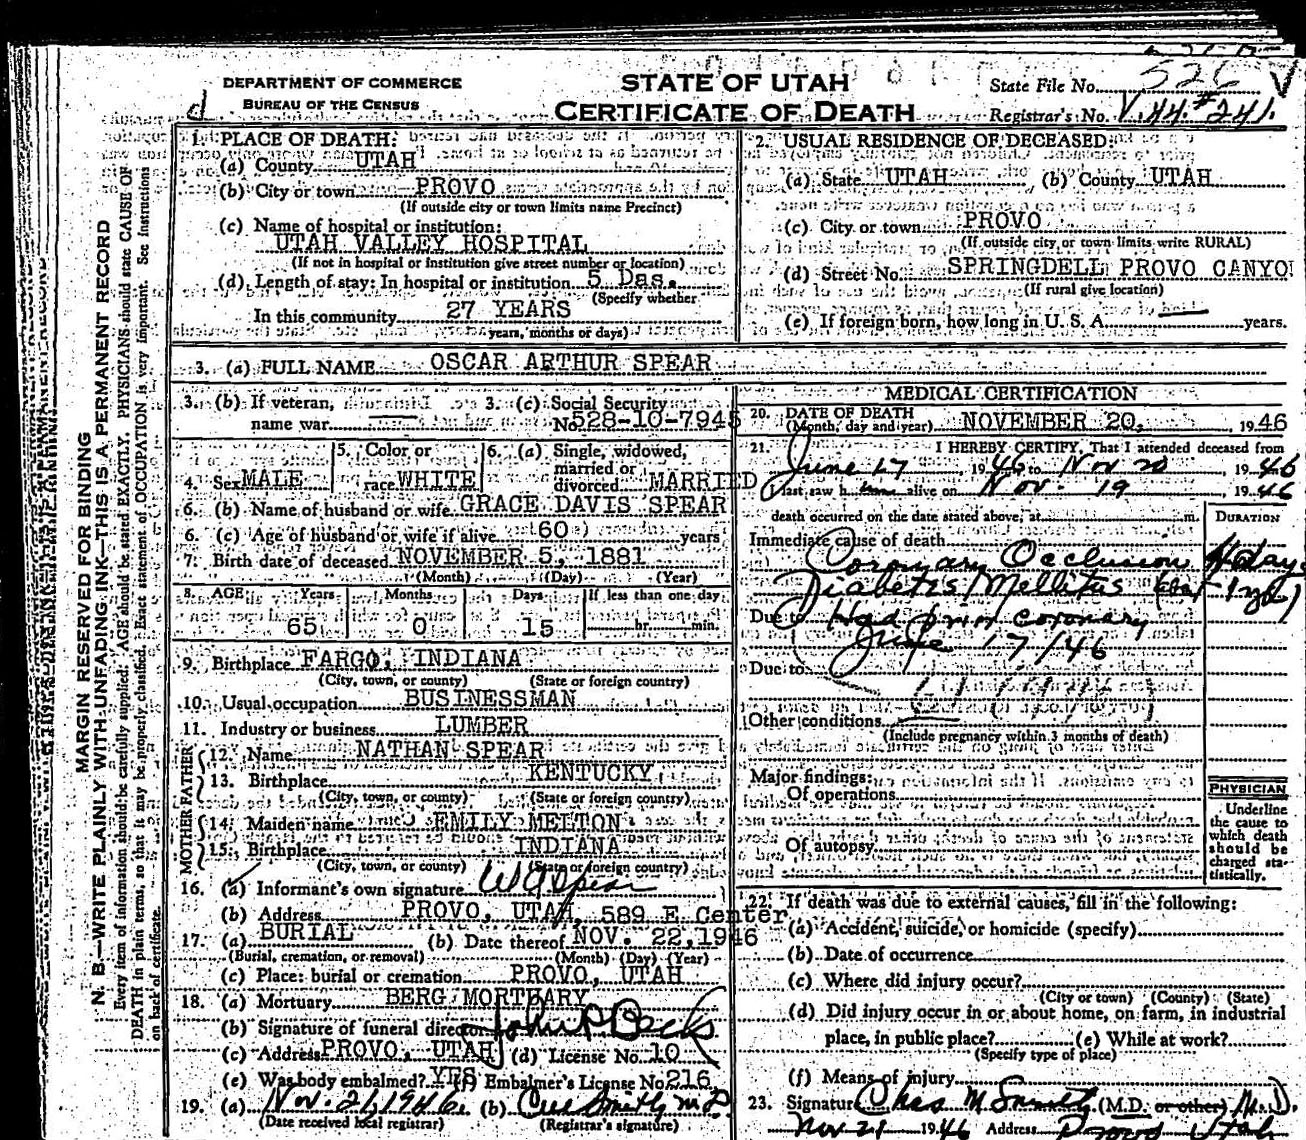 DEPARTMENT OF COMMERCE
BUREAU OF THE CENSUS
d
STATE OF UTAH
CERTIFICATE OF DEATH
State File No. 526 V
Registrar's No. V.44. #241.
MARGIN RESERVED FOR BINDING
N. B.—WRITE PLAINLY WITH UNFADING INK—THIS IS A PERMANENT RECORD
Every item of information should be carefully supplied. AGE should be stated EXACTLY. PHYSICIANS should state CAUSE OF
DEATH in plain terms, so that it may be properly classified. Exact statement of OCCUPATION is very important. See instructions
on back of certificate.
1. PLACE OF DEATH:
(a) County UTAH
(b) City or town PROVO
(If outside city or town limits name Precinct)
(c) Name of hospital or institution:
UTAH VALLEY HOSPITAL
(If not in hospital or institution give street number or location)
(d) Length of stay: In hospital or institution 5 Das.
(Specify whether
In this community 27 YEARS
years, months or days)
2. USUAL RESIDENCE OF DECEASED:
(a) State UTAH (b) County UTAH
(c) City or town PROVO
(If outside city or town limits write RURAL)
(d) Street No. SPRINGDELL PROVO CANYO
(If rural give location)
(e) If foreign born, how long in U. S. A. — years.
3. (a) FULL NAME OSCAR ARTHUR SPEAR
3. (b) If veteran, name war —
3. (c) Social Security No. 528-10-7945
4. Sex MALE
5. Color or race WHITE
6. (a) Single, widowed, married or divorced MARRIED
6. (b) Name of husband or wife GRACE DAVIS SPEAR
6. (c) Age of husband or wife if alive 60 years
7. Birth date of deceased NOVEMBER 5, 1881
(Month) (Day) (Year)
8. AGE Years Months Days If less than one day
65 0 15 hr. min.
9. Birthplace FARGO, INDIANA
(City, town, or county) (State or foreign country)
10. Usual occupation BUSINESSMAN
11. Industry or business LUMBER
FATHER
12. Name NATHAN SPEAR
13. Birthplace KENTUCKY
(City, town, or county) (State or foreign country)
MOTHER
14. Maiden name EMILY MELTON
15. Birthplace INDIANA
(City, town, or county) (State or foreign country)
16. (a) Informant's own signature Spear
(b) Address PROVO, UTAH, 589 E Center
17. (a) BURIAL (b) Date thereof NOV. 22, 1946
(Burial, cremation, or removal) (Month) (Day) (Year)
(c) Place: burial or cremation PROVO, UTAH
18. (a) Mortuary BERG MORTUARY
(b) Signature of funeral director John
(c) Address PROVO, UTAH (d) License No. 10
(e) Was body embalmed? YES (f) Embalmer's License No. 216
19. (a) Nov. 21, 1946. (b) Smith M D
(Date received local registrar) (Registrar's signature)
MEDICAL CERTIFICATION
20. DATE OF DEATH
(Month, day and year) NOVEMBER 20, 1946
21. I HEREBY CERTIFY, That I attended deceased from
June 17, 1946 to Nov 20, 1946
I last saw him alive on Nov. 19 1946
death occurred on the date stated above, at m. DURATION
Immediate cause of death
Coronary Occlusion 4 days
Diabetes Mellitus
Due to Had prior coronary
June 17/46
Due to
Other conditions
(Include pregnancy within 3 months of death)
Major findings:
Of operations
Of autopsy
PHYSICIAN
Underline
the cause to
which death
should be
charged sta-
tistically.
22. If death was due to external causes, fill in the following:
(a) Accident, suicide, or homicide (specify)
(b) Date of occurrence
(c) Where did injury occur?
(City or town) (County) (State)
(d) Did injury occur in or about home, on farm, in industrial
place, in public place? (e) While at work?
(Specify type of place)
(f) Means of injury
23. Signature Chas M Smith (M.D. or other) M.D.
Nov 21 1946 Address Provo Utah